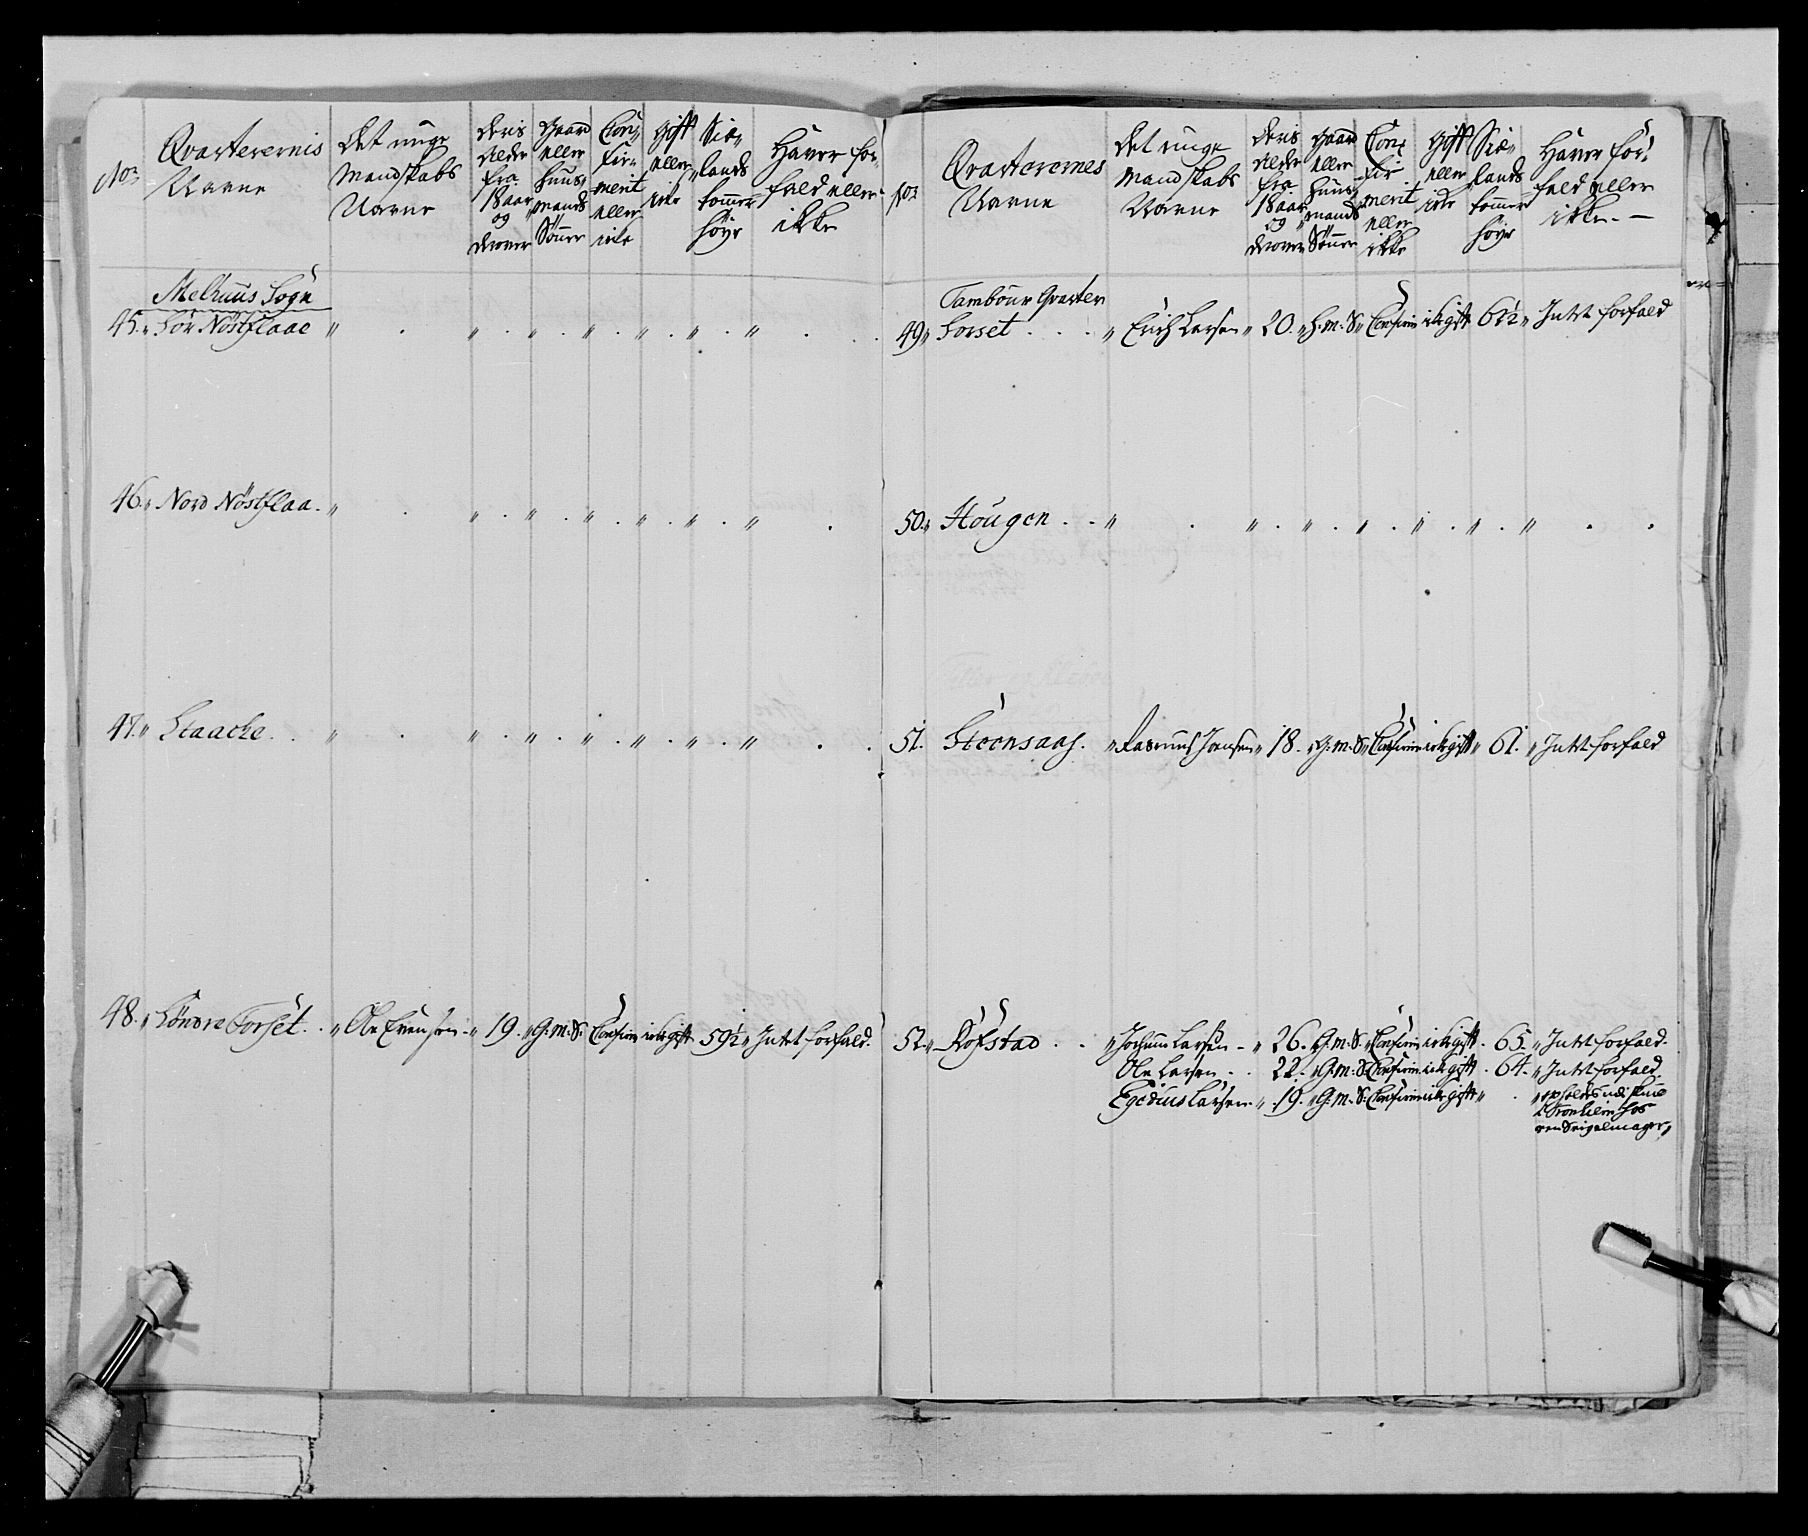 No:
Qvarterernis
Navne
Det unge
Mandskabs
Navne
Deris
Alder
fra
18 aar
og
derover
Gaard
eller
Huus,
mands
Sønner
Con,
fir,
merit
eller
ikke
Gift
eller
ikke
Siæ,
lands
tommer
høye
Haver for,
fald eller
ikke
Melhuus Sogn
45. Sør Nöstflaae " . " . " . " . " . " . " .
46. Nord Nöstflaa. " . " . " . " . " . " . " .
47. Staache. . " . " . " . " . " . " . " . .
48. Söndre Forset. . " Ole Evensen " 19. " G:m:S: Confirm ikke gift 59½ " Intet forfald.
No:
Qvarterernes
Navne
Det unge
Mandskabs
Navne
Deris
Alder
fra
18 aar
og
derover
Gaard
eller
Huus
mands
Sønner
Con,
fir
merit
eller
ikke
Gift
eller
ikke
Siæ,
lands
tommer
høye
Haver for,
fald eller
ikke. —
Tambour Qvarter
49. Forset . . . " Erich Larsen " 20. " H:m:S " Confirm ikke gift 61½ " Intet forfald
50. Hougen . . " . " . " . " . " . " . " . .
51. Steensaas. " Rasmus Jonsen " 18. " G:m:S " Confirm ikke gift " 61. " Intet forfald
52. Kofstad . . " Jochum Larsen - " 26. G:m:S. " Confirm ikke gift . 65. " Intet forfald.
Ole Larsen . . 22. " G:m:S Confirm ikke gift . 64. " Intet forfald.
Egedius Larsen " 19. " G:m:S. Confirm ikke gift " . " opholds udi
i Tronhiem hos
en Seigelmager "